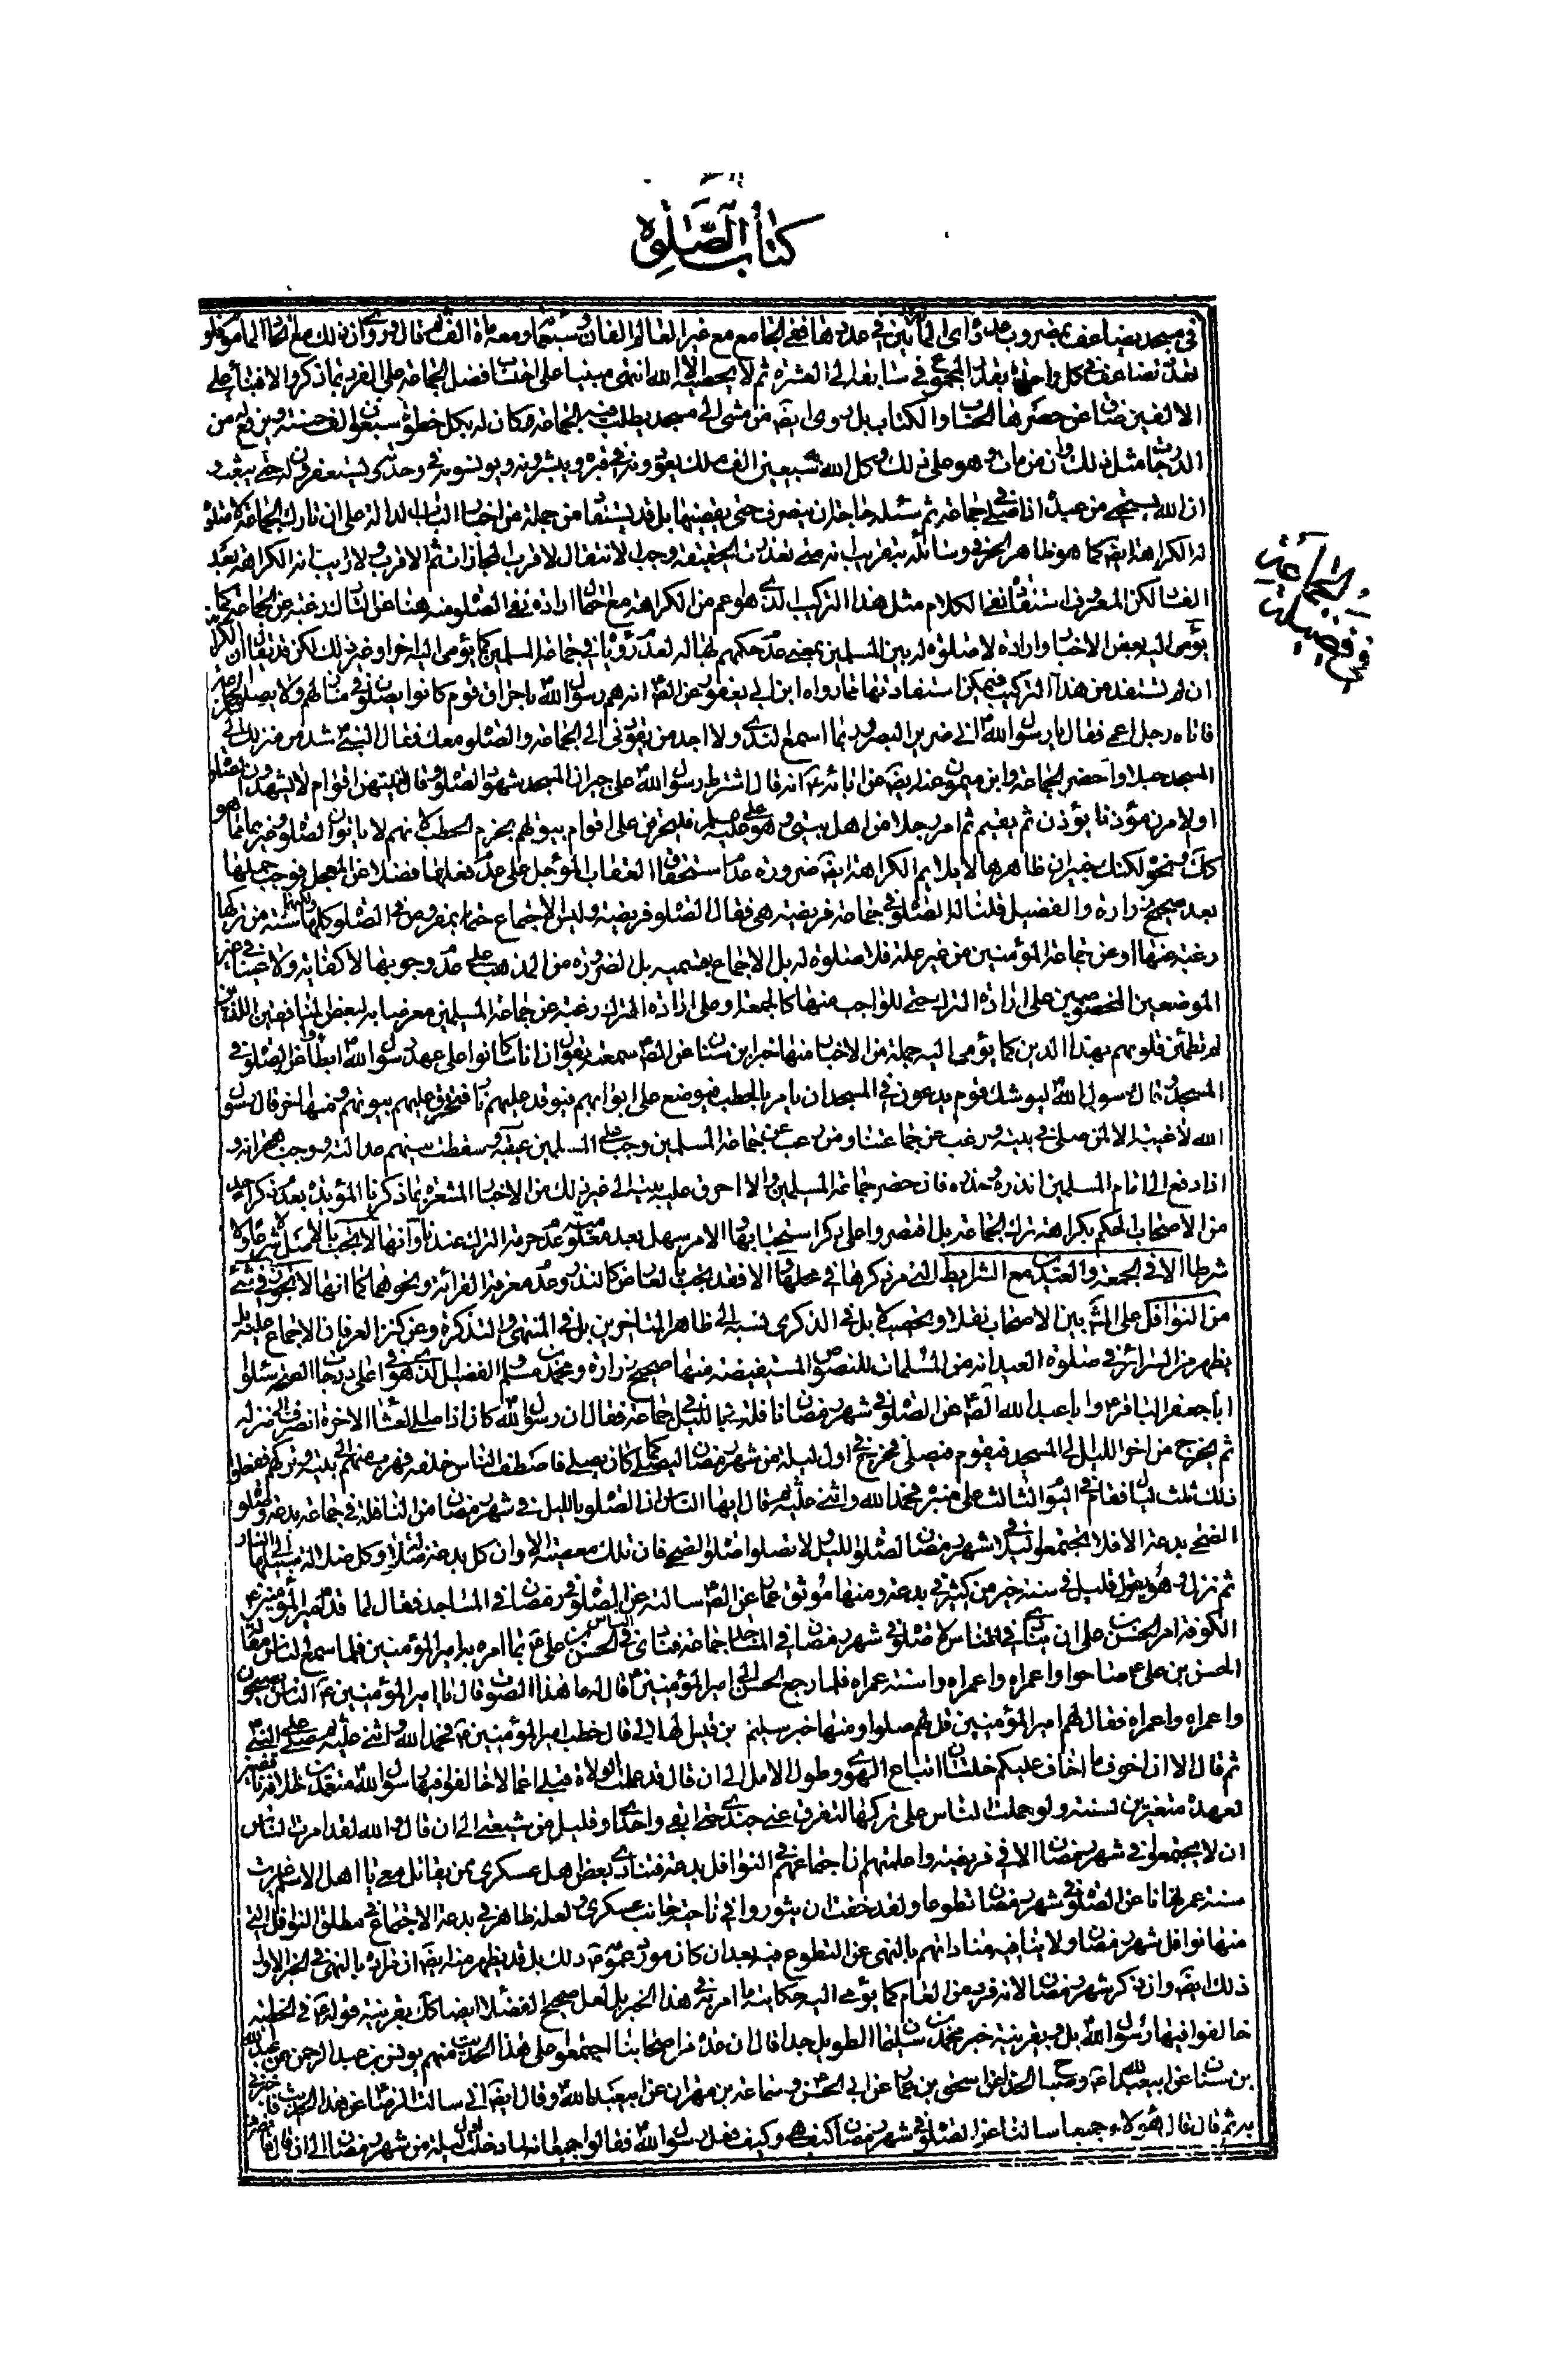 كتاب الصلوة
في فضيلة الجماعة
في مسجد يضاعف بمضروب عدده في عددها ففي الجامع مع غير العالم الفان وسبعمأة ومعه مأة الف قال وروى ان ذلك مع اتحاد المأموم فلو
تعدد تضاعف في كل واحد بقدر المجموع في سابقه الى العشرة ثم لا يحصيه الا الله انتهى مبنيا على اختصا فضل الجماعة على الفرد بما ذكر والا فبناء على
الالفين ضاق عن حصرها الحساب والكتاب بل روى ايضا من مشى الى مسجد يطلب فيه الجماعة كان له بكل خطوة سبعون الف حسنة ويرفع له من
الدرجات مثل ذلك وان من مات وهو على ذلك وكل الله به سبعين الف ملك يعودونه في قبره ويبشرونه ويونسونه في وحدته ويستغفرون له حتى يبعث و
ان الله يستحيي من عبده اذا صلى في جماعة ثم سئله حاجة ان ينصرف حتى يقضيها بل قد يستفاد من جملة من اخبار الباب الدالة على ان تارك الجماعة لا صلوة
له الكراهة ايضا كما هو ظاهر الحر في وسائله بتقريب انه متى تعذرت الحقيقة وجب الانتقال لاقرب المجازات ثم الاقرب ولا ريب انه الكراهة بعد
الفساد لكن المعروف استفادة نفي الكمال من مثل هذا التركيب الذي هو اعم من الكراهة مع احتمال ارادة نفي الصلوة منه هنا عن التارك رغبة عن الجماعة كما
يؤمي اليه بعض الاخبار وارادة لا صلوة له بين المسلمين بمعنى عدم حكمهم بها له لعدم رؤياه في جماعة المسلمين كما يؤمي اليه اخر او غير ذلك لكن قد يقال ان الكراهة
ان لم تستفد من هذا التركيب فيمكن استفادتها مما رواه ابن ابي يعفور عن الص انه هم رسول الله باحراق قوم كانوا يصلون في منازلهم ولا يصلون الجماعة
فاتاه رجل اعمى فقال يا رسول الله اني ضرير البصر وربما اسمع النداء ولا اجد من يقودني الى الجماعة والصلوة معك فقال النبي شد من منزلك الى
المسجد حبلا واحضر الجماعة وابن ميمون عنه ايضا عن ابائه ع انه قال اشترط رسول الله على جيران المسجد شهود الصلوة وقال لينتهين اقوام لا يشهدون الصلوة
او لامرن مؤذنا يؤذن ثم يقيم ثم امر رجلا من اهل بيتي وهو علي فليحرقن على اقوام بيوتهم بحزم الحطب لانهم لا ياتون الصلوة وغيرهما مما هو
كك ونحوه لكنك خبير ان ظاهرها لا يلايم الكراهة ايضا ضرورة عدم استحقاق العقاب المؤجل على عدم فعلها فضلا عن المعجل فوجب حملها
بعد صحيح زرارة والفضيل قلنا له الصلوة في جماعة فريضة هي فقال الصلوة فريضة وليس الاجتماع بمفروض في الصلوة كلها ولكنها سنة من تركها
رغبة عنها او عن جماعة المؤمنين من غير علة فلا صلوة له بل الاجماع بقسميه بل الضرورة من المذهب على عدم وجوبها لا كفاية ولا عينا في غير
الموضعين المخصوصين على ارادة الترك حتى للواجب منها كالجمعة او على ارادة الترك رغبة عن جماعة المسلمين معرضا به لبعض المنافقين الذين
لم تطمئن قلوبهم بهذا الدين كما يؤمي اليه جملة من الاخبار منها خبر ابن سنان عن الص سمعته يقول ان اناسا كانوا على عهد رسول الله ابطأوا عن الصلوة في
المسجد فقال رسول الله ليوشك قوم يدعون الصلوة في المسجد ان يامر بالحطب فيوضع على ابوابهم فيوقد عليهم نار فتحرق عليهم بيوتهم ومنها الخبر قال رسول
الله لا غيبة الا لمن صلى في بيته ورغب عن جماعتنا ومن رغب عن جماعة المسلمين وجب على المسلمين غيبته وسقطت بينهم عدالته ووجب هجرانه و
اذا رفع الى امام المسلمين انذره وحذره فان حضر جماعة المسلمين والا احرق عليه بيته الى غير ذلك من الاخبار المشعرة بما ذكرنا المؤيدة بعدم ذكر احد
من الاصحاب الحكم بكراهة ترك الجماعة بل اقتصروا على ذكر استحبابها والامر سهل بعد معلومية عدم حرمة الترك عندنا وانها لا تجب بالاصل شرعا ولا
شرطا الا في الجمعة والعيدين مع الشرايط التي مر ذكرها في محلها والا فقد تجب بالعارض كالنذر وعدم معرفة القرائة ونحوهما كما انها لا تجوز في شيء
من النوافل على المشهور بين الاصحاب نقلا وتحصيلا بل في الذكرى نسبته الى ظاهر المتاخرين بل في المنتهى والتذكرة وعن كنز العرفان الاجماع عليه بل
يظهر من السرائر في صلوة العيد انه من المسلمات للنصوص المستفيضة منها صحيح زرارة ومحمد بن مسلم والفضيل الذي هو في اعلى درجات الصحة سئلوا
ابا جعفر الباقر وابا عبد الله الص عن الصلوة في شهر رمضان نافلة بالليل في جماعة فقال ان رسول الله كان اذا صلى العشاء الاخرة انصرف الى منزله
ثم يخرج من اخر الليل الى المسجد فيقوم فيصلي فخرج في اول ليلة من شهر رمضان ليصلي كما كان يصلي فاصطف الناس خلفه فهرب منهم الى بيته وتركهم ففعلوا
ذلك ثلث ليال فقام في اليوم الثالث على منبره فحمد الله واثنى عليه ثم قال ايها الناس ان الصلوة بالليل في شهر رمضان من النافلة في جماعة بدعة وصلوة
الضحى بدعة الا فلا تجتمعوا ليلا في شهر رمضان لصلوة الليل ولا تصلوا صلوة الضحى فان تلك معصية الا وان كل بدعة ضلالة وكل ضلالة سبيلها الى النار
ثم نزل وهو يقول قليل في سنة خير من كثير في بدعة ومنها موثق عمار عن الص سالته عن الصلوة في رمضان في المساجد فقال لما قدم امير المؤمنين ع
الكوفة امر الحسن بن علي ان ينادي في الناس لا صلوة في شهر رمضان في المساجد جماعة فنادى في الناس الحسن بن علي ع بما امره به امير المؤمنين فلما سمع الناس مقالة
الحسن بن علي ع صاحوا واعمراه واعمراه واسنة عمراه فلما رجع الحسن الى امير المؤمنين قال له ما هذا الصوت فقال يا امير المؤمنين ع الناس يصيحون
واعمراه واعمراه فقال لهم امير المؤمنين قل لهم صلوا ومنها خبر سليم بن قيس الهلالي قال خطب امير المؤمنين ع فحمد الله واثنى عليه ثم صلى على النبي
ثم قال الا ان اخوف ما اخاف عليكم خلتان اتباع الهوى وطول الامل الى ان قال قد عملت الولاة قبلي اعمالا خالفوا فيها رسول الله متعمدين لخلافه ناقضين
لعهده متغيرين لسنته ولو حملت الناس على تركها لتفرق عني جندي حتى ابقى واحدي او قليل من شيعتي الى ان قال والله لقد امرت الناس
ان لا يجتمعوا في شهر رمضان الا في فريضة واعلمتهم ان اجتماعهم في النوافل بدعة فتنادى بعض اهل عسكري ممن يقاتل معي يا اهل الاسلام غيرت
سنة عمر نهانا عن الصلوة في شهر رمضان تطوعا ولقد خفت ان يثوروا في ناحية جانب عسكري ولعله ظاهر في بدعة الاجتماع في مطلق النوافل التي
منها نوافل شهر رمضان ولا ينافيه مناداتهم بالنهي عن التطوع فيه بعد ان كان مورد عموم ذلك بل قد يظهر منه ايضا ان المراد بالنهي في الخبر الاول
ذلك ايضا وان ذكر شهر رمضان لانه فرد من العام كما يؤمي اليه حكايته ما امر به في هذا الخبر بل لعل صحيح الفضلاء ايضا كك بقرينة قوله ع في الخطبة
خالفوا فيها رسول الله بل وبقرينة خبر محمد بن سليمان الطويل جدا قال ان عدة من اصحابنا اجتمعوا على هذا الحديث منهم يونس بن عبد الرحمن عن عبد الله
بن سنان عن ابيعبد الله ع وصباح الحذاء عن اسحق بن عمار عن ابي الحسن وسماعة بن مهران عن ابيعبد الله وقال ايضا اني سالت الرضا عن هذا الحديث فاخبرني
به ثم قال قال هؤلاء جميعا سالنا عن الصلوة في شهر رمضان كيف هي وكيف فعل رسول الله فقالوا جميعا انه لما دخلت اول ليلة من شهر رمضان الى ان قال